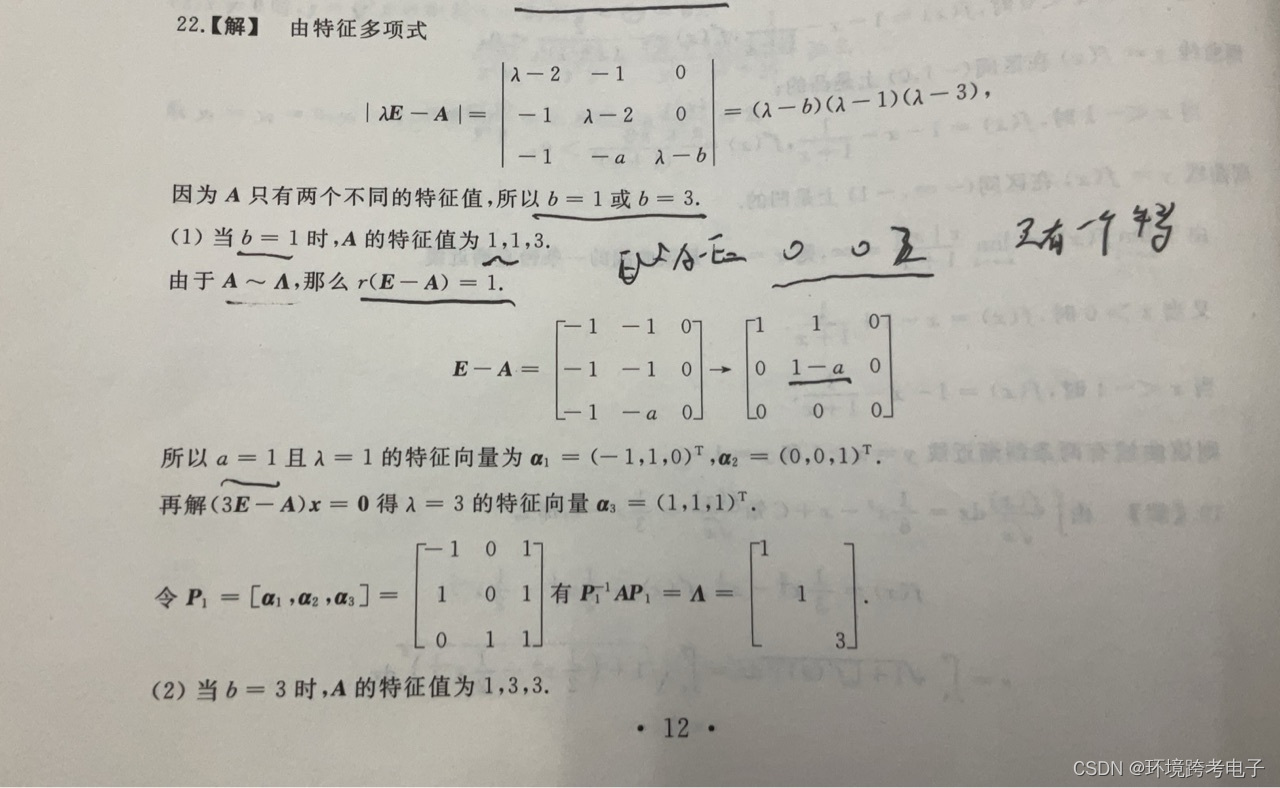 22.【解】 由特征多项式
|λE－A|= | λ－2 －1 0 | =(λ－b)(λ－1)(λ－3),
－1 λ－2 0
－1 －a λ－b
因为 A 只有两个不同的特征值,所以 b = 1 或 b = 3.
(1) 当 b = 1 时,A 的特征值为 1,1,3.
0 0
只有一个
由于 A ～ Λ,那么 r(E－A) = 1.
E－A = [－1 －1 0] → [1 1 0]
[－1 －1 0] [0 1－a 0]
[－1 －a 0] [0 0 0]
所以 a = 1 且 λ = 1 的特征向量为 α₁ = (－1,1,0)ᵀ,α₂ = (0,0,1)ᵀ.
再解(3E－A)x = 0 得 λ = 3 的特征向量 α₃ = (1,1,1)ᵀ.
令 P₁ = [α₁,α₂,α₃] = [－1 0 1] 有 P₁⁻¹AP₁ = Λ = [1 ] .
[1 0 1] [ 1 ]
[0 1 1] [ 3]
(2) 当 b = 3 时,A 的特征值为 1,3,3.
• 12 •
CSDN @环境跨考电子